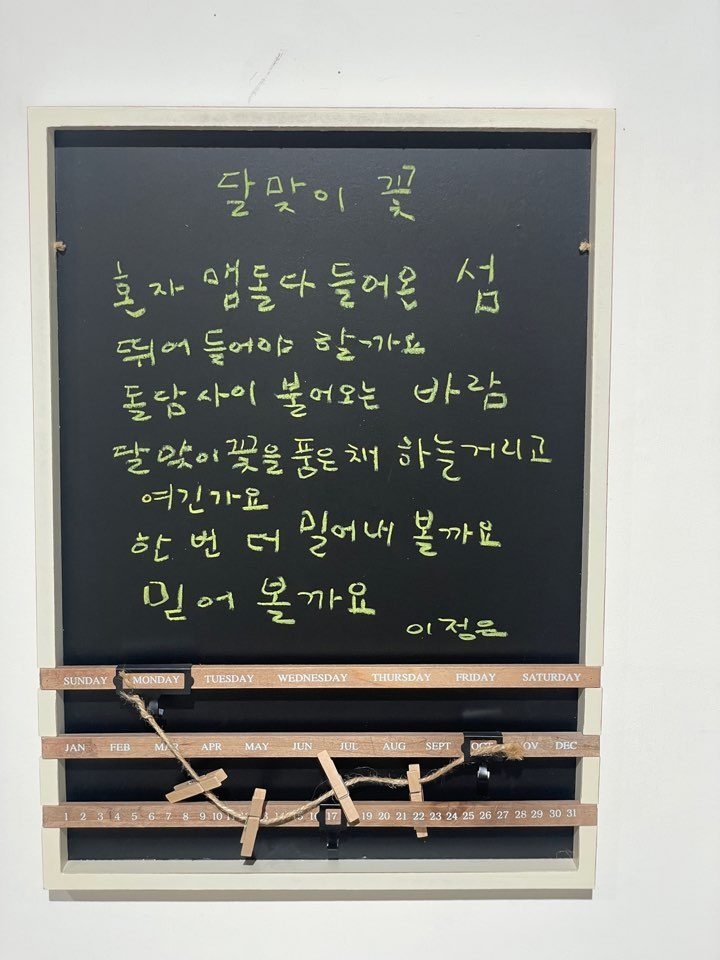 달맞이 꽃
혼자 맴돌다 들어온 섬
뛰어 들어야 할까요
돌담 사이 불어오는 바람
달맞이꽃을 품은 채 하늘거리고
여긴가요
한 번 더 밀어내 볼까요
믿어 볼까요
이정은
SUNDAY MONDAY TUESDAY WEDNESDAY THURSDAY FRIDAY SATURDAY
JAN FEB MAR APR MAY JUN JUL AUG SEPT OCT NOV DEC
1 2 3 4 5 6 7 8 9 10 11 13 14 15 17 19 20 21 22 23 24 25 26 27 28 29 30 31